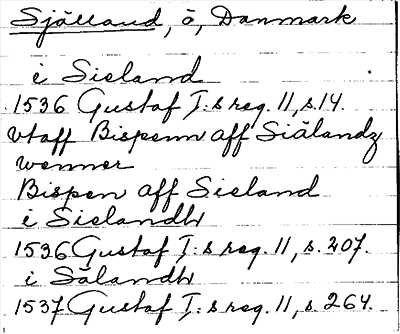 Sjælland, ö, Danmark
i Sieland
1536 Gustaf I:s reg. 11, s. 14.
vtaff Bispenn aff Siälandz
wenner
Bispen aff Sieland
i Sielandh
1536 Gustaf I:s reg. 11, s. 207.
i Sälandh
1537 Gustaf I:s reg. 11, s. 264.